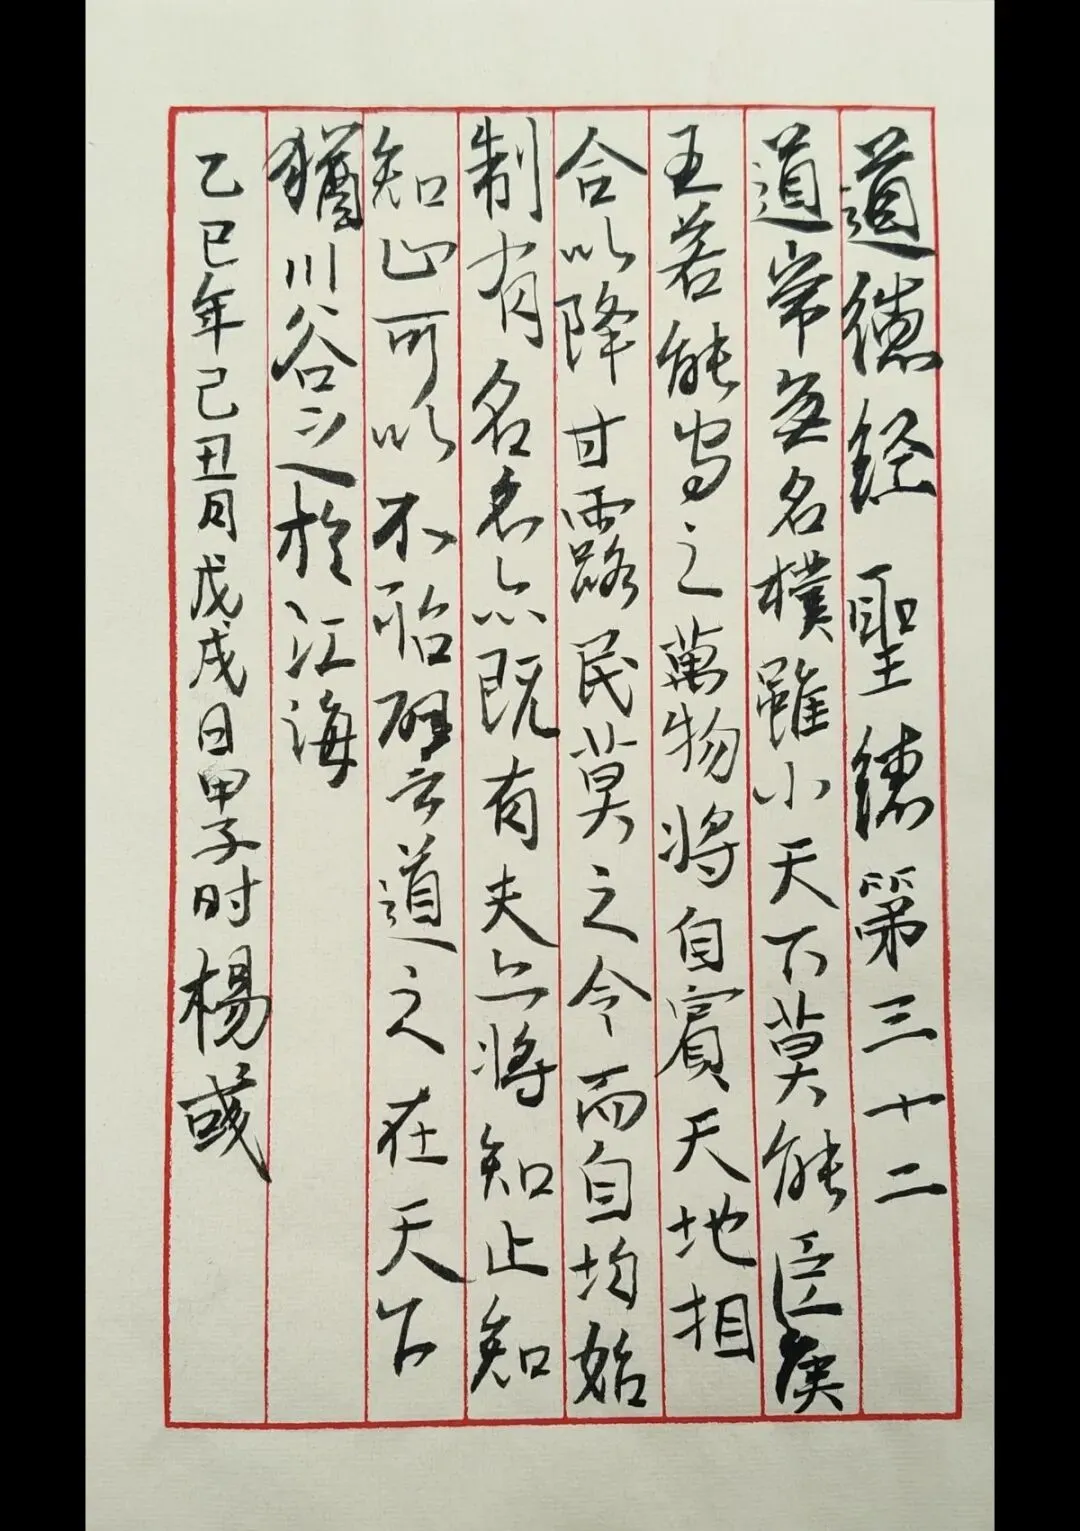 道德經 聖德第三十二
道常無名樸雖小天下莫能臣侯
王若能守之萬物将自賓天地相
合以降甘露民莫之令而自均始
制有名名亦既有夫亦将知止知
知止可以不殆譬道之在天下
猶川谷之於江海
乙巳年己丑月戊戌日甲子时楊彧